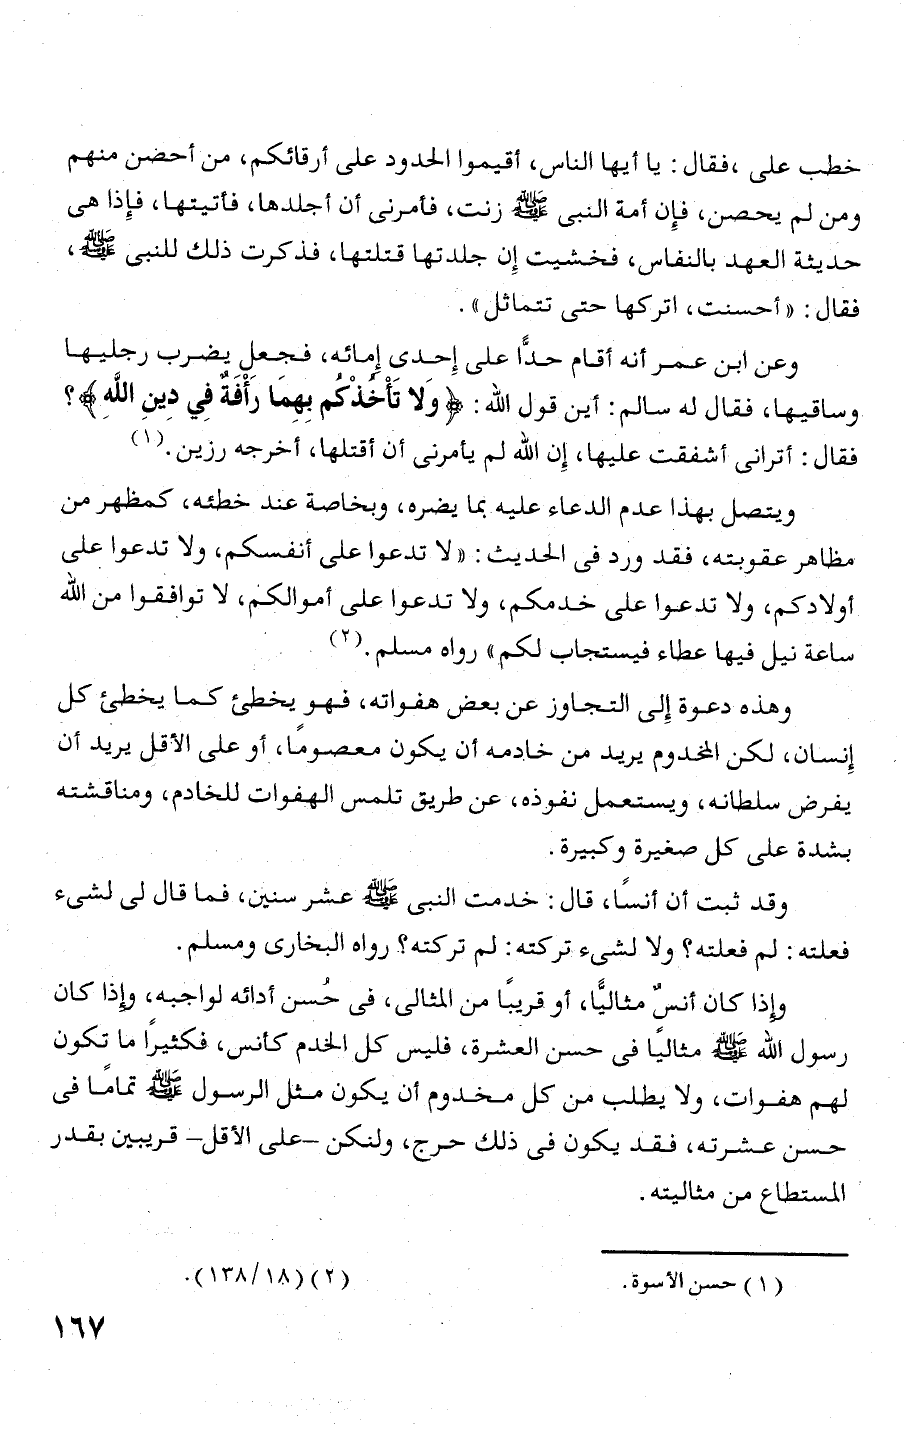 خطب على ،فقال : يا أيها الناس، أقيموا الحدود على أرقائكم، من أحضن منهم
ومن لم يحصن، فإن أمة النبى ﷺ زنت، فأمرنى أن أجلدها، فأتيتها، فإذا هى
حديثة العهد بالنفاس، فخشيت إن جلدتها قتلتها، فذكرت ذلك للنبى ﷺ،
فقال : «أحسنت، اتركها حتى تتماثل» .
وعن ابن عمر أنه أقام حدًّا على إحدى إمائه، فجعل يضرب رجليها
وساقيها، فقال له سالم : أين قول الله : ﴿وَلا تَأْخُذْكُم بِهِمَا رَأْفَةٌ فِي دِينِ اللَّهِ﴾؟
فقال : أترانى أشفقت عليها، إن الله لم يأمرنى أن أقتلها، أخرجه رزين .(١)
ويتصل بهذا عدم الدعاء عليه بما يضره، وبخاصة عند خطئه، كمظهر من
مظاهر عقوبته، فقد ورد فى الحديث : «لا تدعوا على أنفسكم، ولا تدعوا على
أولادكم، ولا تدعوا على خدمكم، ولا تدعوا على أموالكم، لا توافقوا من الله
ساعة نيل فيها عطاء فيستجاب لكم» رواه مسلم .(٢)
وهذه دعوة إلى التجاوز عن بعض هفواته، فهو يخطئ كما يخطئ كل
إنسان، لكن المخدوم يريد من خادمه أن يكون معصومًا، أو على الأقل يريد أن
يفرض سلطانه، ويستعمل نفوذه، عن طريق تلمس الهفوات للخادم، ومناقشته
بشدة على كل صغيرة وكبيرة .
وقد ثبت أن أنسًا، قال : خدمت النبى ﷺ عشر سنين، فما قال لى لشىء
فعلته : لم فعلته؟ ولا لشىء تركته : لم تركته؟ رواه البخارى ومسلم .
وإذا كان أنسٌ مثاليًّا، أو قريبًا من المثالى، فى حُسن أدائه لواجبه، وإذا كان
رسول الله ﷺ مثاليًا فى حسن العشرة، فليس كل الخدم كأنس، فكثيرًا ما تكون
لهم هفوات، ولا يطلب من كل مخدوم أن يكون مثل الرسول ﷺ تمامًا فى
حسن عشرته، فقد يكون فى ذلك حرج، ولنكن –على الأقل– قريبين بقدر
المستطاع من مثاليته .
(١) حسن الأسوة .
(٢) (١٣٨/١٨).
١٦٧